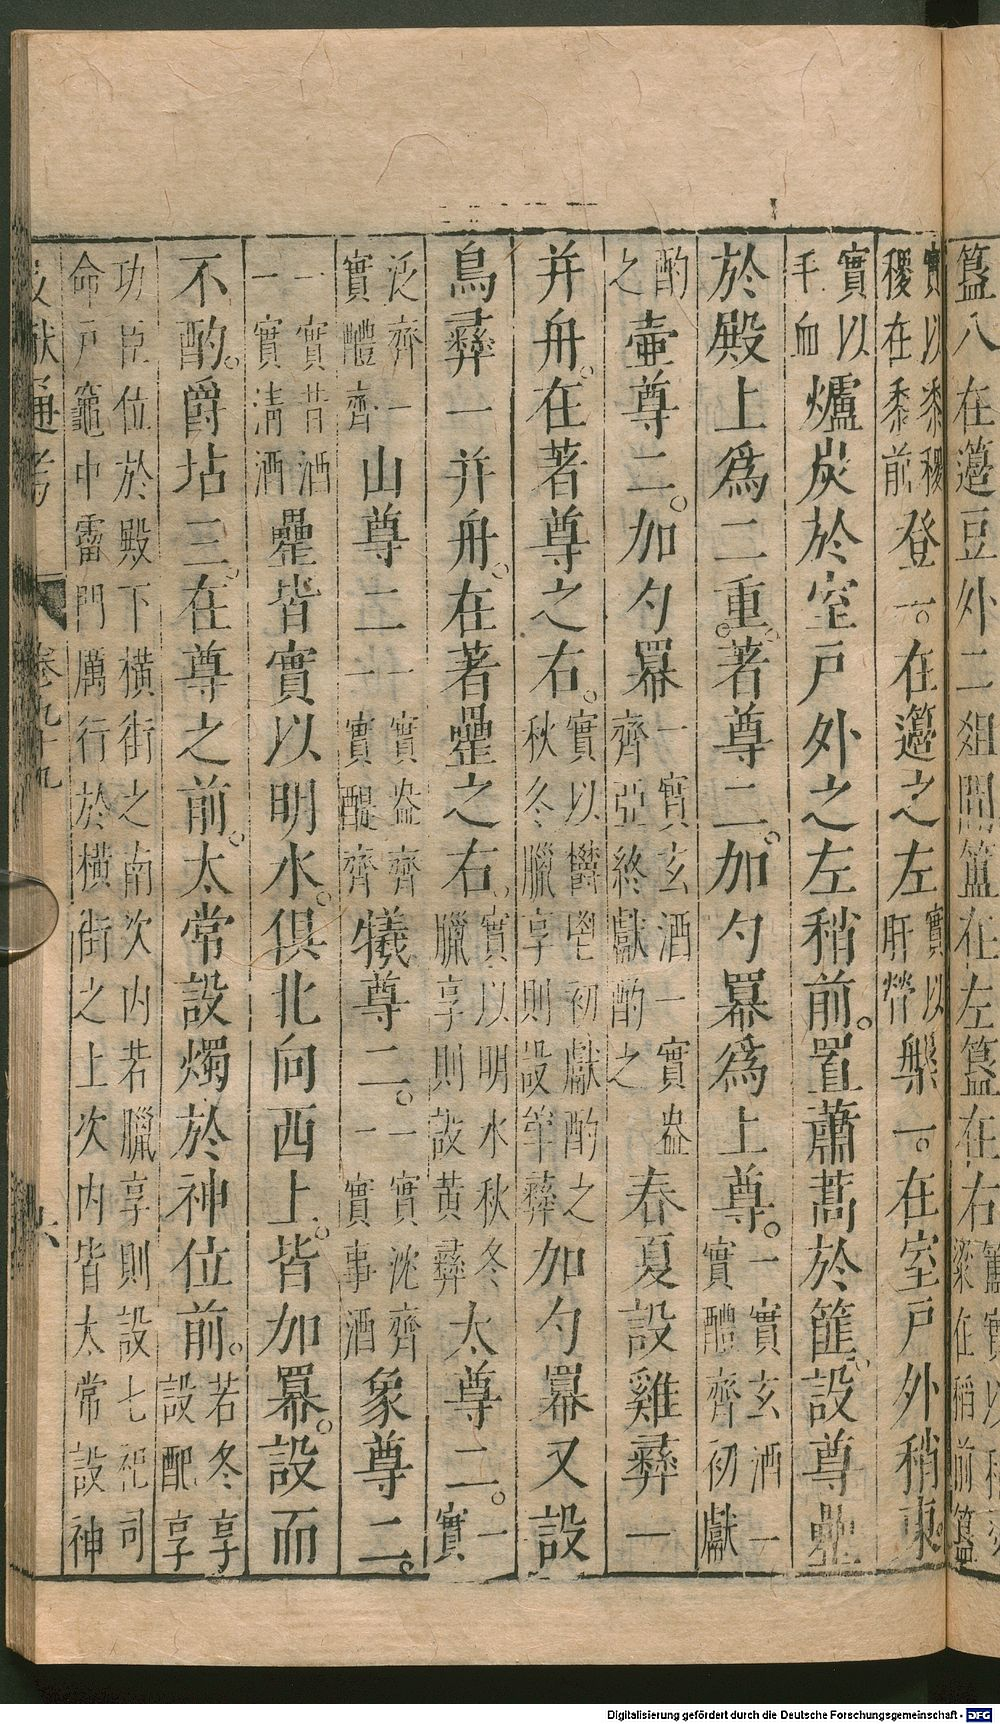 簋八在籩豆外二俎間簠在左簋在右
實以黍稷稷在黍前登一。在籩之左實以肝膋槃一。在室戶外稍東。
實以毛血爐炭於室戶外之左稍前。置蕭蒿於篚。設尊罍
於殿上爲二重。著尊二。加勺羃爲上尊。一實玄酒一實醴齊初獻
酌之壺尊二。加勺羃一實玄酒一實盎齊亞終獻酌之春夏設雞彝一
并舟。在著尊之右。實以鬱鬯初獻酌之秋冬臘享則設斝彝加勺羃又設
鳥彝一并舟。在著罍之右。實以明水秋冬臘享則設黄彝太尊二。一實
泛齊一實醴齊山尊二一實盎齊一實醍齊犧尊二。一實沈齊一實事酒象尊二。
一實昔酒一實清酒罍皆實以明水。俱北向西上。皆加羃。設而
不酌。爵坫三。在尊之前。太常設燭於神位前。若冬享設配享
功臣位於殿下橫街之南次內若臘享則設七祀司命戸竈中霤門厲行於橫街之上次內皆太常設神
文獻通考 卷之九十九 六
Digitalisierung gefördert durch die Deutsche Forschungsgemeinschaft - DFG